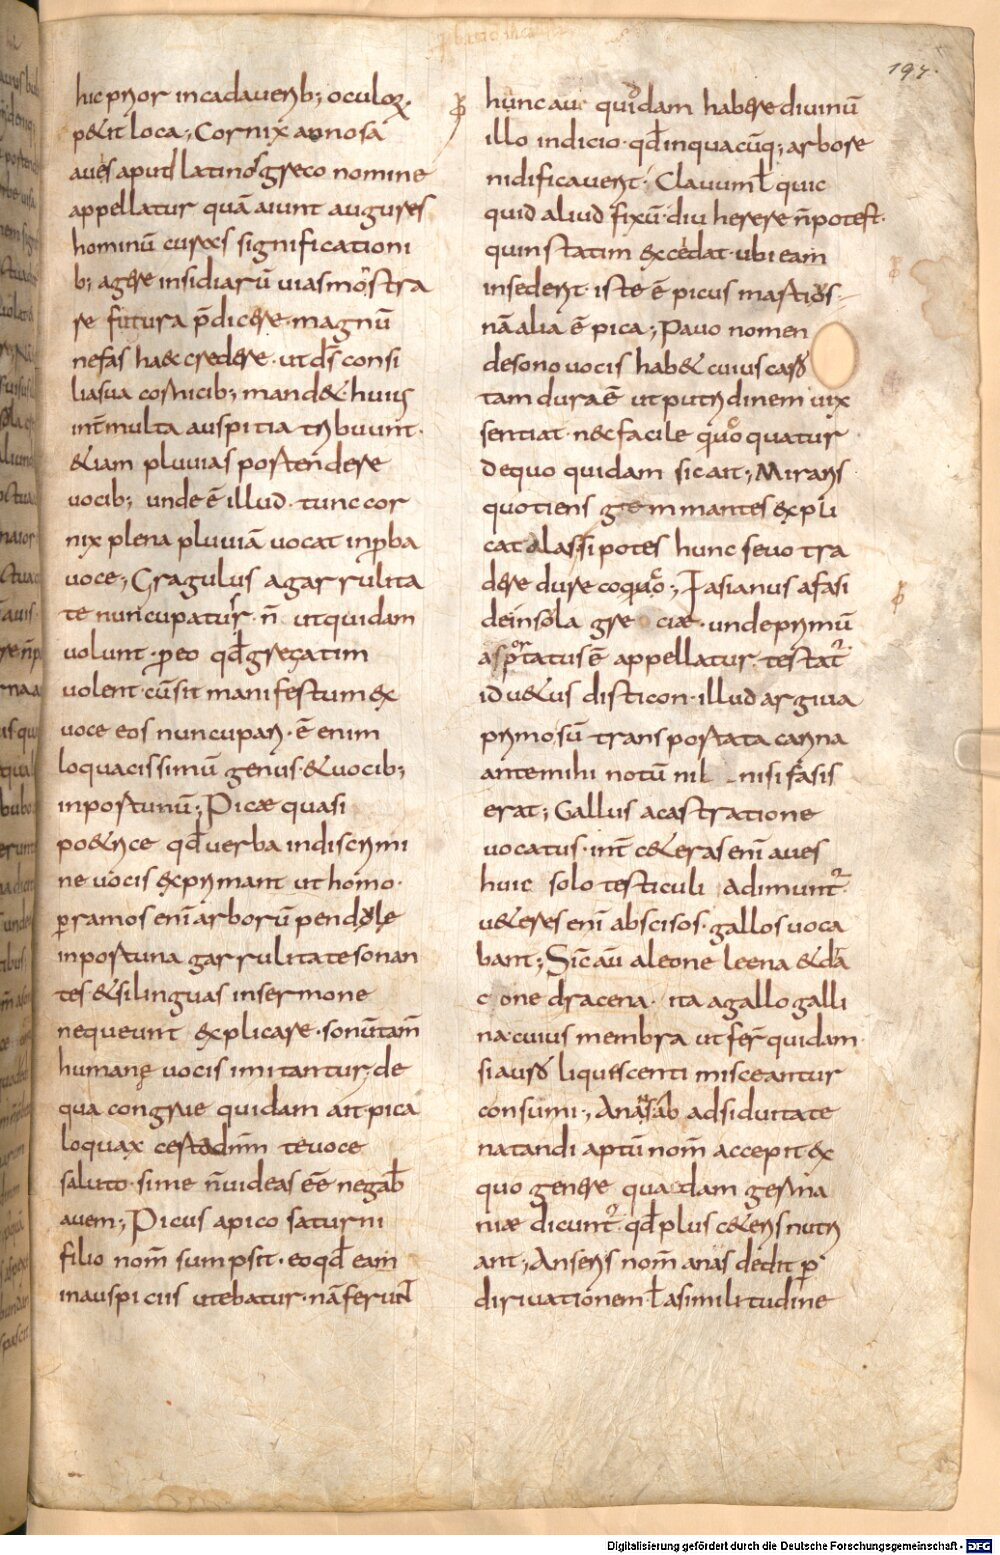 197.
hic prior in cadauerib; oculoꝝ.
petit loca; Cornix annosa
aues aput latinos greco nomine
appellatur quā aiunt augures
hominū cures significationi
b; agere insidiarū uias mostra
re futura p̄dicere. magnū
nefas haec credere. ut d̄s consi
lia sua cornicib; mandet huiꝰ
int̄ multa auspitia tribuunt.
etiam pluuias portendere
uocib; unde ē illud. tunc cor
nix plena pluuiā uocat inꝓba
uoce; Gragulus a garrulita
te nuncupatur. n̄ ut quidam
uolunt. ꝓ eo qđ gregatim
uolent. cū sit manifestum ex
uoce eos nuncupari. ē enim
loquacissimū genus. et uocib;
inportunū; Picae quasi
poetrice qđ uerba in discrimi
ne uocis exprimant ut homo.
ꝑ ramos enī arborū pendole
inportuna garrulitate sonan
tes et si linguas in sermone
nequeunt explicare. sonū tam̄
humanę uocis imitantur; de
qua congrue quidam ait. pica
loquax certa dnm̄ te uoce
saluto. si me n̄ uideas eē̄ negab̄
auem; Picus a pico saturni
filio nom̄ sumpsit. eo qđ eam
in auspiciis utebatur. nā ferunt
hunc aue quidam habere diuinū
illo indicio. qđ in quacūq; arbore
nidificauerit; Clauum ł quic
quid aliud fixū. diu herere n̄ potest.
quin statim excedat. ubi eam
insederit. iste ē picus martios
nā alia ē pica; Pauo nomen
de sono uocis habet cuius caro
tam dura ē ut putridinem uix
sentiat. nec facile quoquatur
De quo quidam sic ait; Miraris
quotiens gemmantes expli
cat alas si potes hunc seuo tra
dere dure coquo; Fasianus a fasi
de insola greciae. unde primū
asportatus ē appellatur. testat᷑
id uetus disticon. illud argiua
primo sū transportata carina
ante mihi notū nil nisi fasis
erat; Gallus a castratione
uocatus. int̄ ceteras enī aues
huic solo testiculi adimunt᷑.
ueteres enī abscisos. gallos uoca
bant; Sic̄ aū a leone leena et dā
c one dracena. ita a gallo galli
na. cuius membra ut fer̄ quidam
si auro liquescenti misceantur
consumi; Anas ab adsiduitate
natandi aptū nom̄ accepit ex
quo genere quaedam germa
niae dicunt᷑. qđ plus ceteris nutri
ant; Anseris nom̄ anas dedit ꝑ
diriuationem ł a similitudine
Digitalisierung gefördert durch die Deutsche Forschungsgemeinschaft - DFG